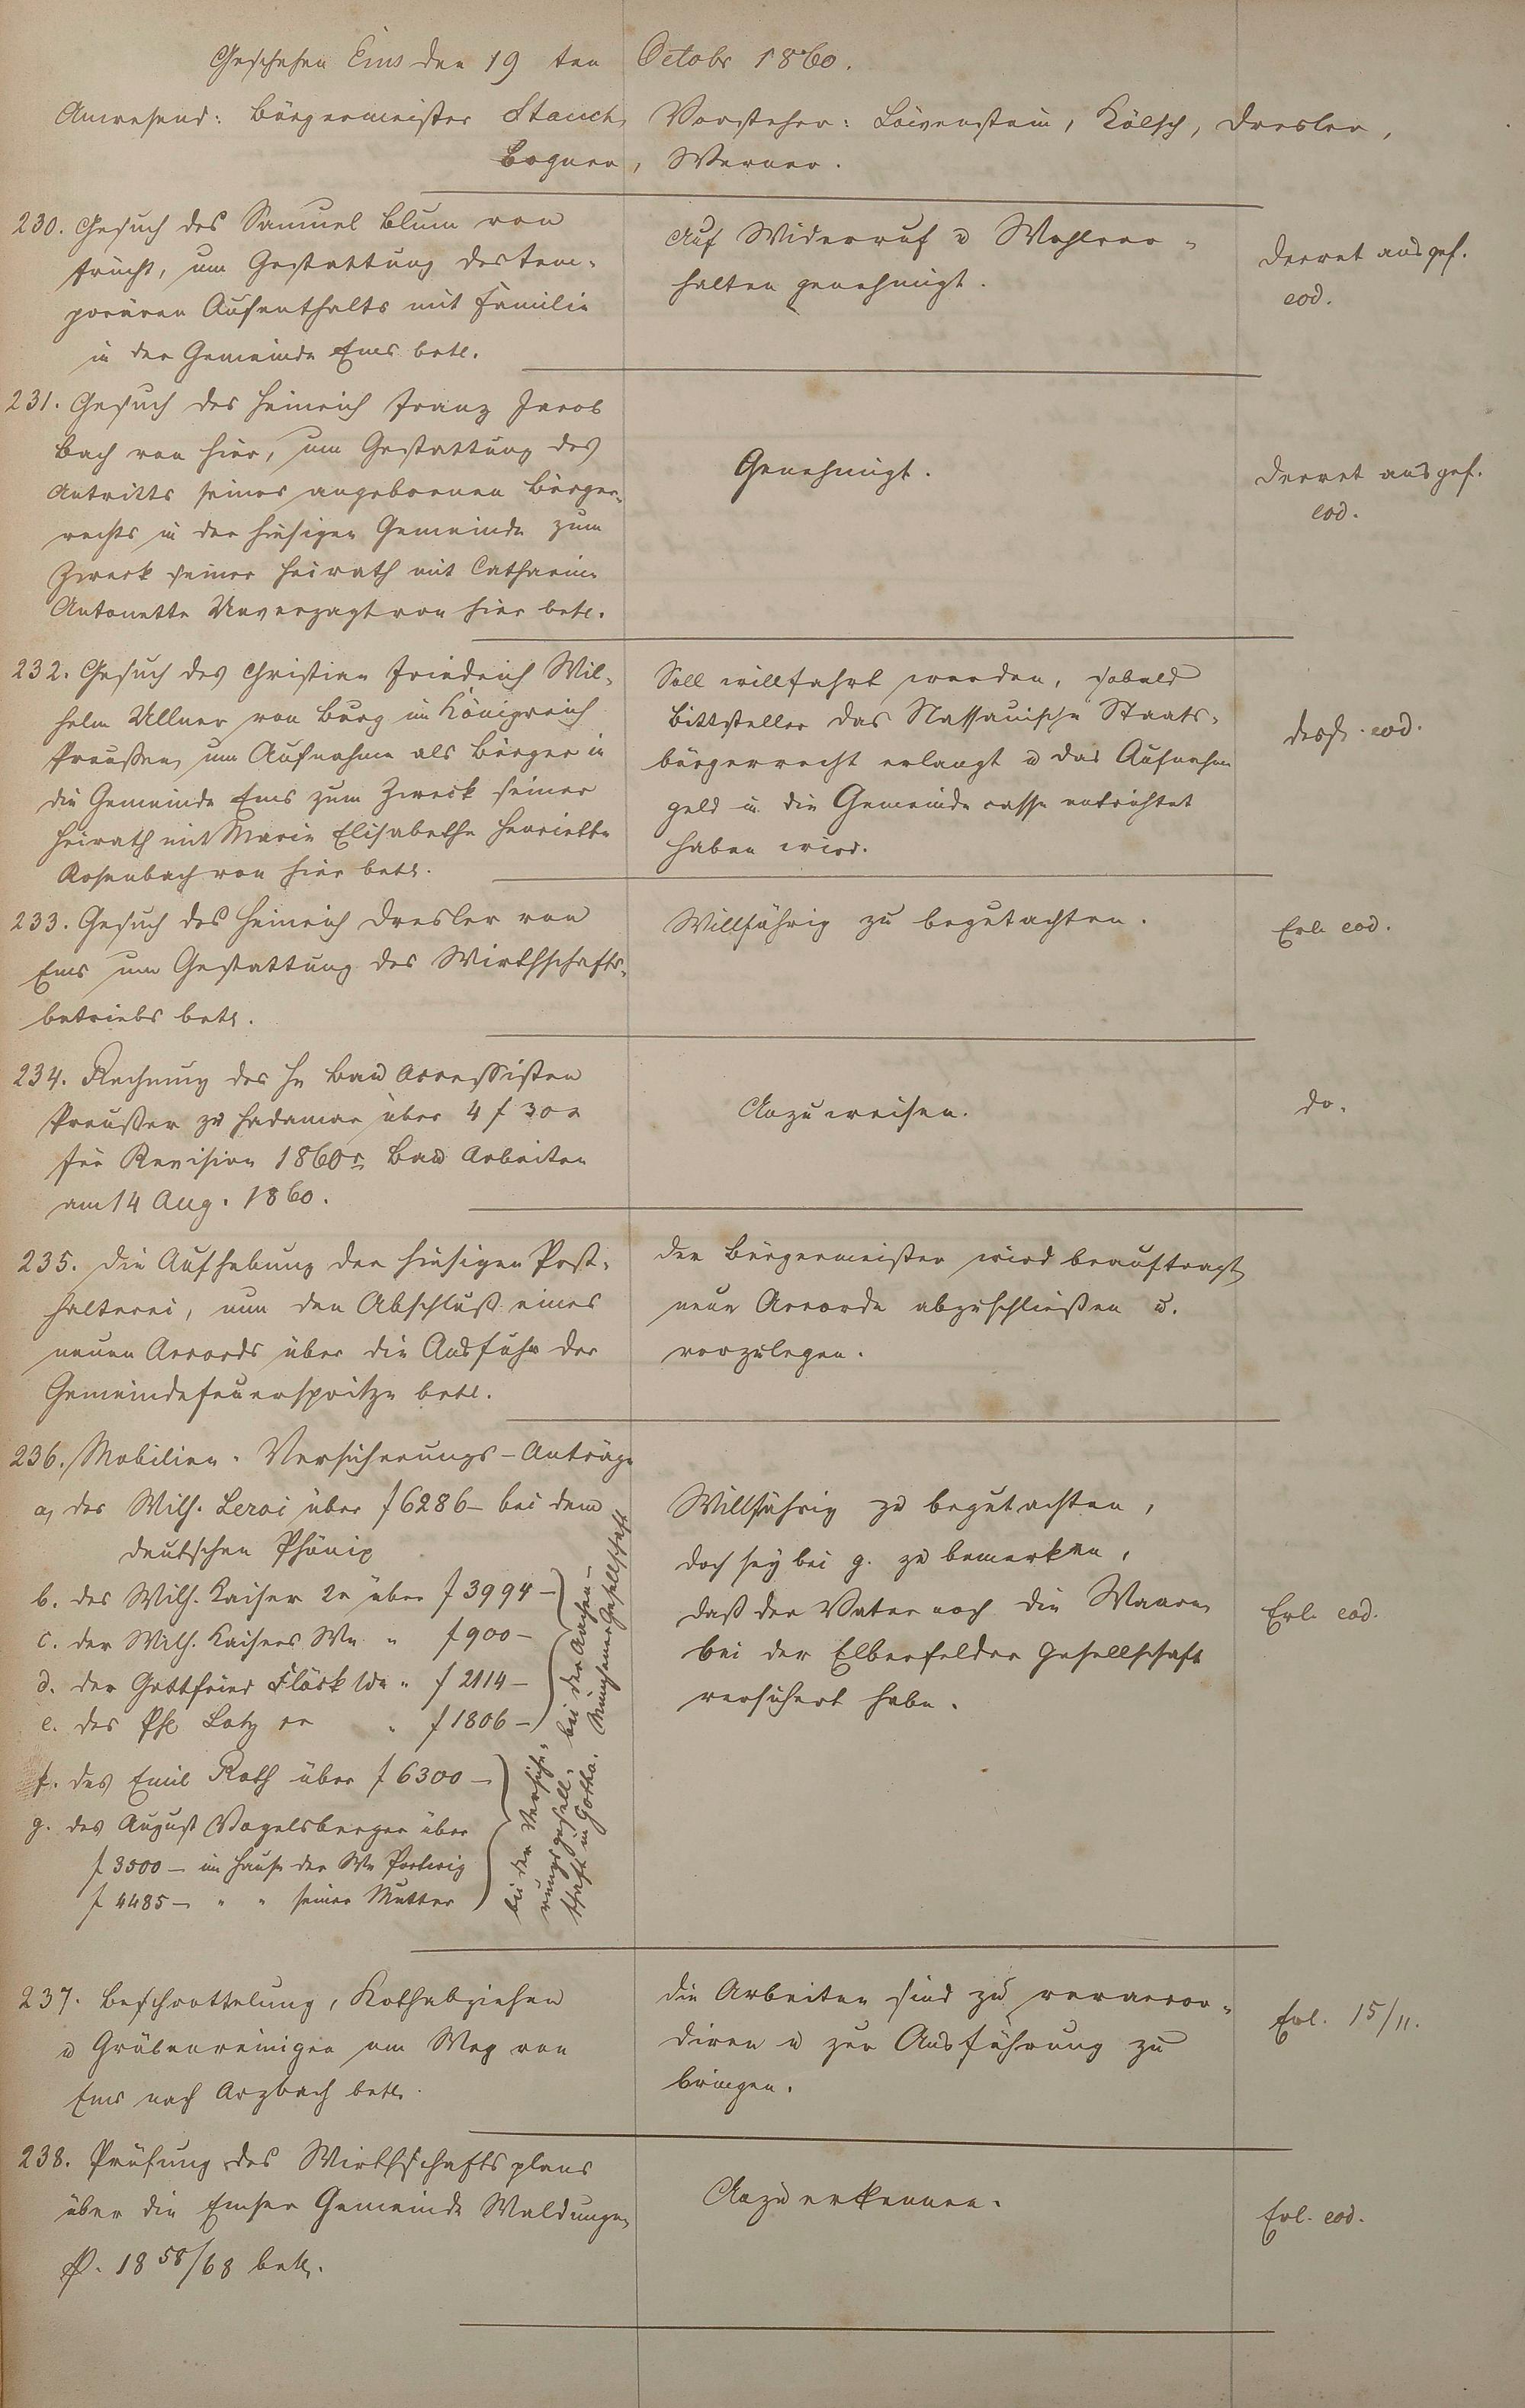 Geschehen Ems den 19 ten Octobr 1860.
Anwesend: Bürgermeister Stauch, Vorsteher: Löwenstein, Kölsch, Dresler,
Bogner, Werner.
230. Gesuch des Samuel Blum von
Frücht, um Gestattung des tem-
porären Aufenthalts mit Familie
in der Gemeinde Ems betr.
Auf Widerruf u Wohlver-
halten genehmigt.
Decret ausgef.
eod.
231. Gesuch des Heinrich Franz Jacob
Bach von hier, um Gestattung des
Antritts seines angebornen Bürger-
rechts in der hiesigen Gemeinde zum
Zweck seiner Heirath mit Catharine
Antonette Unverzagt von hier betr.
Genehmigt.
Decret ausgef.
eod.
232. Gesuch des Christian Friedrich Wil-
helm Ullner von Burg im Königreich
Preußen, um Aufnahme als Bürger in
die Gemeinde Ems zum Zweck seiner
Heirath mit Marie Elisabethe Henriette
Rosenbach von hier betr.
Soll willfahrt werden, sobald
Bittsteller das Nassauische Staats-
bürgerrecht erlangt u das Aufnahm
geld in die Gemeindecasse entrichtet
haben wird.
desgl. eod.
233. Gesuch des Heinrich Dresler von
Ems um Gestattung des Wirthschafts-
betriebs betr.
Willfährig zu begutachten.
Erl. eod.
234. Rechnung des H. Bau Accessisten
Preußer zu Hadamar über 4 f 30 x
für Revision 1860r Bau Arbeiten
am 14 Aug. 1860.
Anzuweisen.
do.
235. Die Aufhebung der hiesigen Post-
halterei, nun den Abschluß eines
neuen Accords über die Ausfuhr der
Gemeindefeuerspritze betr.
Der Bürgermeister wird beauftragt,
neue Accorde abzuschließen u.
vorzulegen.
236. Mobilien-Versicherungs-Anträge
a, des Wilh. Leroi über f 6286 – bei dem
deutschen Phönix
b. des Wilh. Kaiser 2r über f 3994 –
c. der Wilh. Kaisers We. " f 900 –
d. der Gottfried Flöck We " f 2114 –
e. des Ph. Lotz " f 1806 –
bei der Aachen-
Münchener Gesellschaft
f. des Emil Roth über f 6300 –
g. des August Vogelsberger über
f 3500 – im Hause der We
f 4485 – " " seiner Mutter
bei der Versiche-
rungsgesell-
schaft in Gotha.
Willfährig zu begutachten,
doch sey bei g. zu bemerken,
daß der Vater noch die Waaren
bei der Elberfelder Gesellschaft
versichert habe.
Erl. eod.
237. Beschrottelung, Kothabziehen
u Gräbenreinigen am Weg von
Ems nach Arzbach betr.
Die Arbeiten sind zu veraccor-
diren u zur Ausführung zu
bringen.
Erl. 15/11.
238. Prüfung des Wirthschaftsplans
über die Emser Gemeinde Waldungen
p. 1858/68 betr.
Anzuerkennen.
Erl. eod.